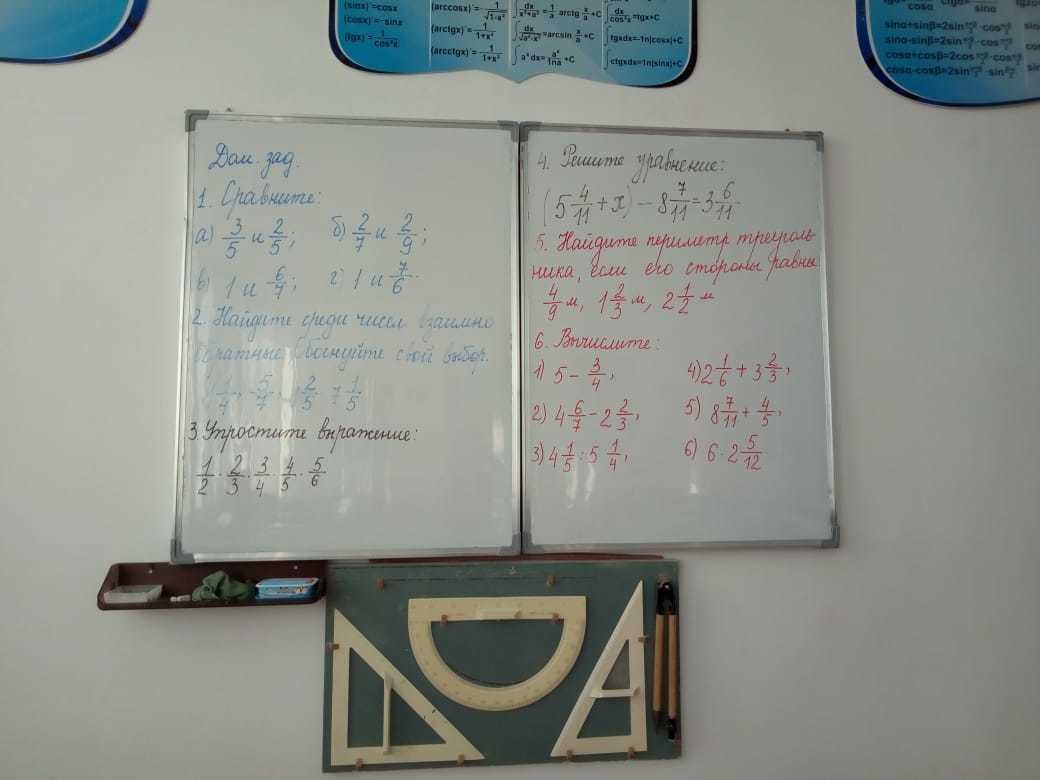 (sinx)'=cosx
(cosx)'=-sinx
(tgx)'=1/cos²x
(arccosx)'=-1/√1-x²
(arctgx)'=1/1+x²
(arcctgx)'=-1/1+x²
∫dx/x²+a²=1/a arctg x/a+C
=arcsin x/a+C
∫aˣdx=aˣ/lna+C
∫dx/cos²x=tgx+C
∫tgxdx=-ln|cosx|+C
∫ctgxdx=ln|sinx|+C
sinα+sinβ=2sin
sinα-sinβ=2sin
cosα+cosβ=2cos
cosα-cosβ=2sin
Дом. зад.
1. Сравните:
а) 3/5 и 2/5; б) 2/7 и 2/9;
в) 1 и 6/7; г) 1 и 7/6.
2. Найдите среди чисел взаимно
обратные. Обоснуйте свой выбор.
2/5 7 1/5
3. Упростите выражение:
1/2 · 2/3 · 3/4 · 4/5 · 5/6
4. Решите уравнение:
(5 4/11 + x) - 8 7/11 = 3 6/11.
5. Найдите периметр треуголь-
ника, если его стороны равны
4/9 м, 1 2/3 м, 2 1/2 м
6. Вычислите:
1) 5 - 3/4; 4) 2 1/6 + 3 2/3;
2) 4 6/7 - 2 2/3; 5) 8 7/11 + 4/5;
3) 4 1/5 : 5 1/4; 6) 6 · 2 5/12